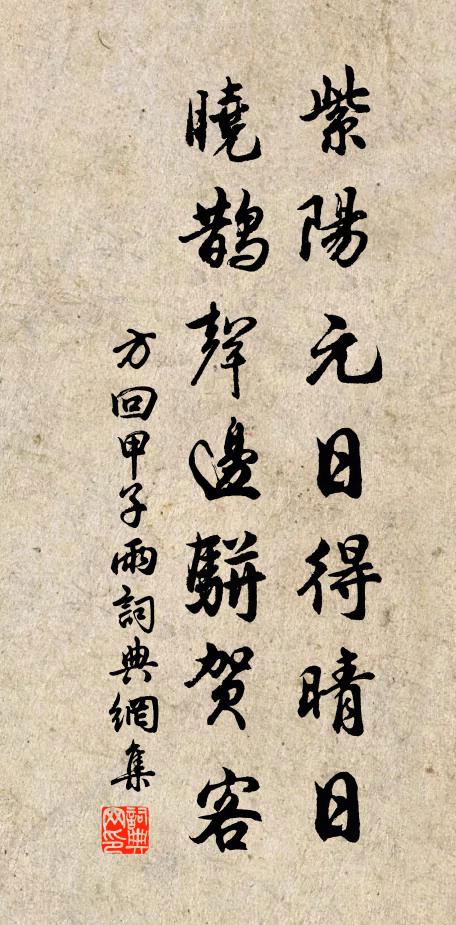 紫陽元日得晴日
曉鵲聲邊駢賀客
方回甲子雨詞典網集
詞典网印